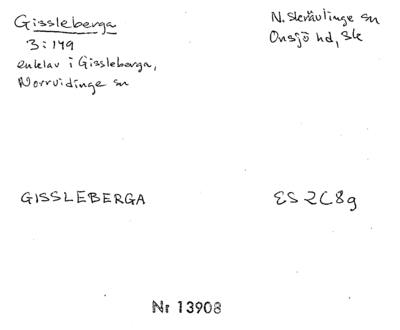 Gissleberga
3:149
enklav i Gissleberga,
Norrvidinge sn
N. Skrävlinge sn
Onsjö hd, Sk
GISSLEBERGA
ES 2C8g
Nr 13908